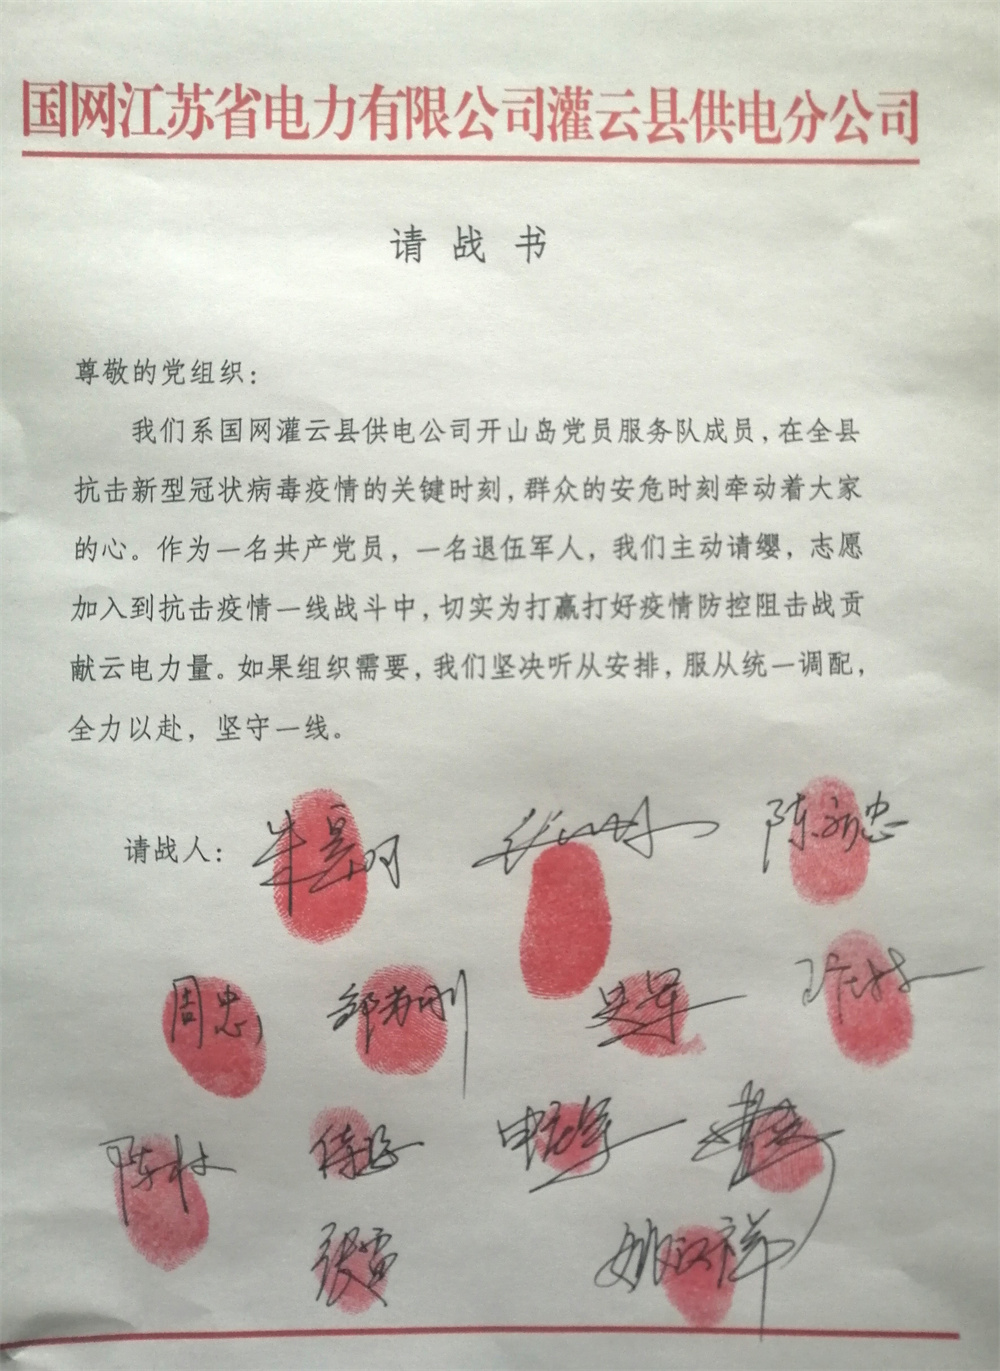 国网江苏省电力有限公司灌云县供电分公司
请战书
尊敬的党组织：
我们系国网灌云县供电公司开山岛党员服务队成员，在全县
抗击新型冠状病毒疫情的关键时刻，群众的安危时刻牵动着大家
的心。作为一名共产党员，一名退伍军人，我们主动请缨，志愿
加入到抗击疫情一线战斗中，切实为打赢打好疫情防控阻击战贡
献云电力量。如果组织需要，我们坚决听从安排，服从统一调配，
全力以赴，坚守一线。
请战人： 陈永忠
周忠
陈林
张雷 姚汉祥